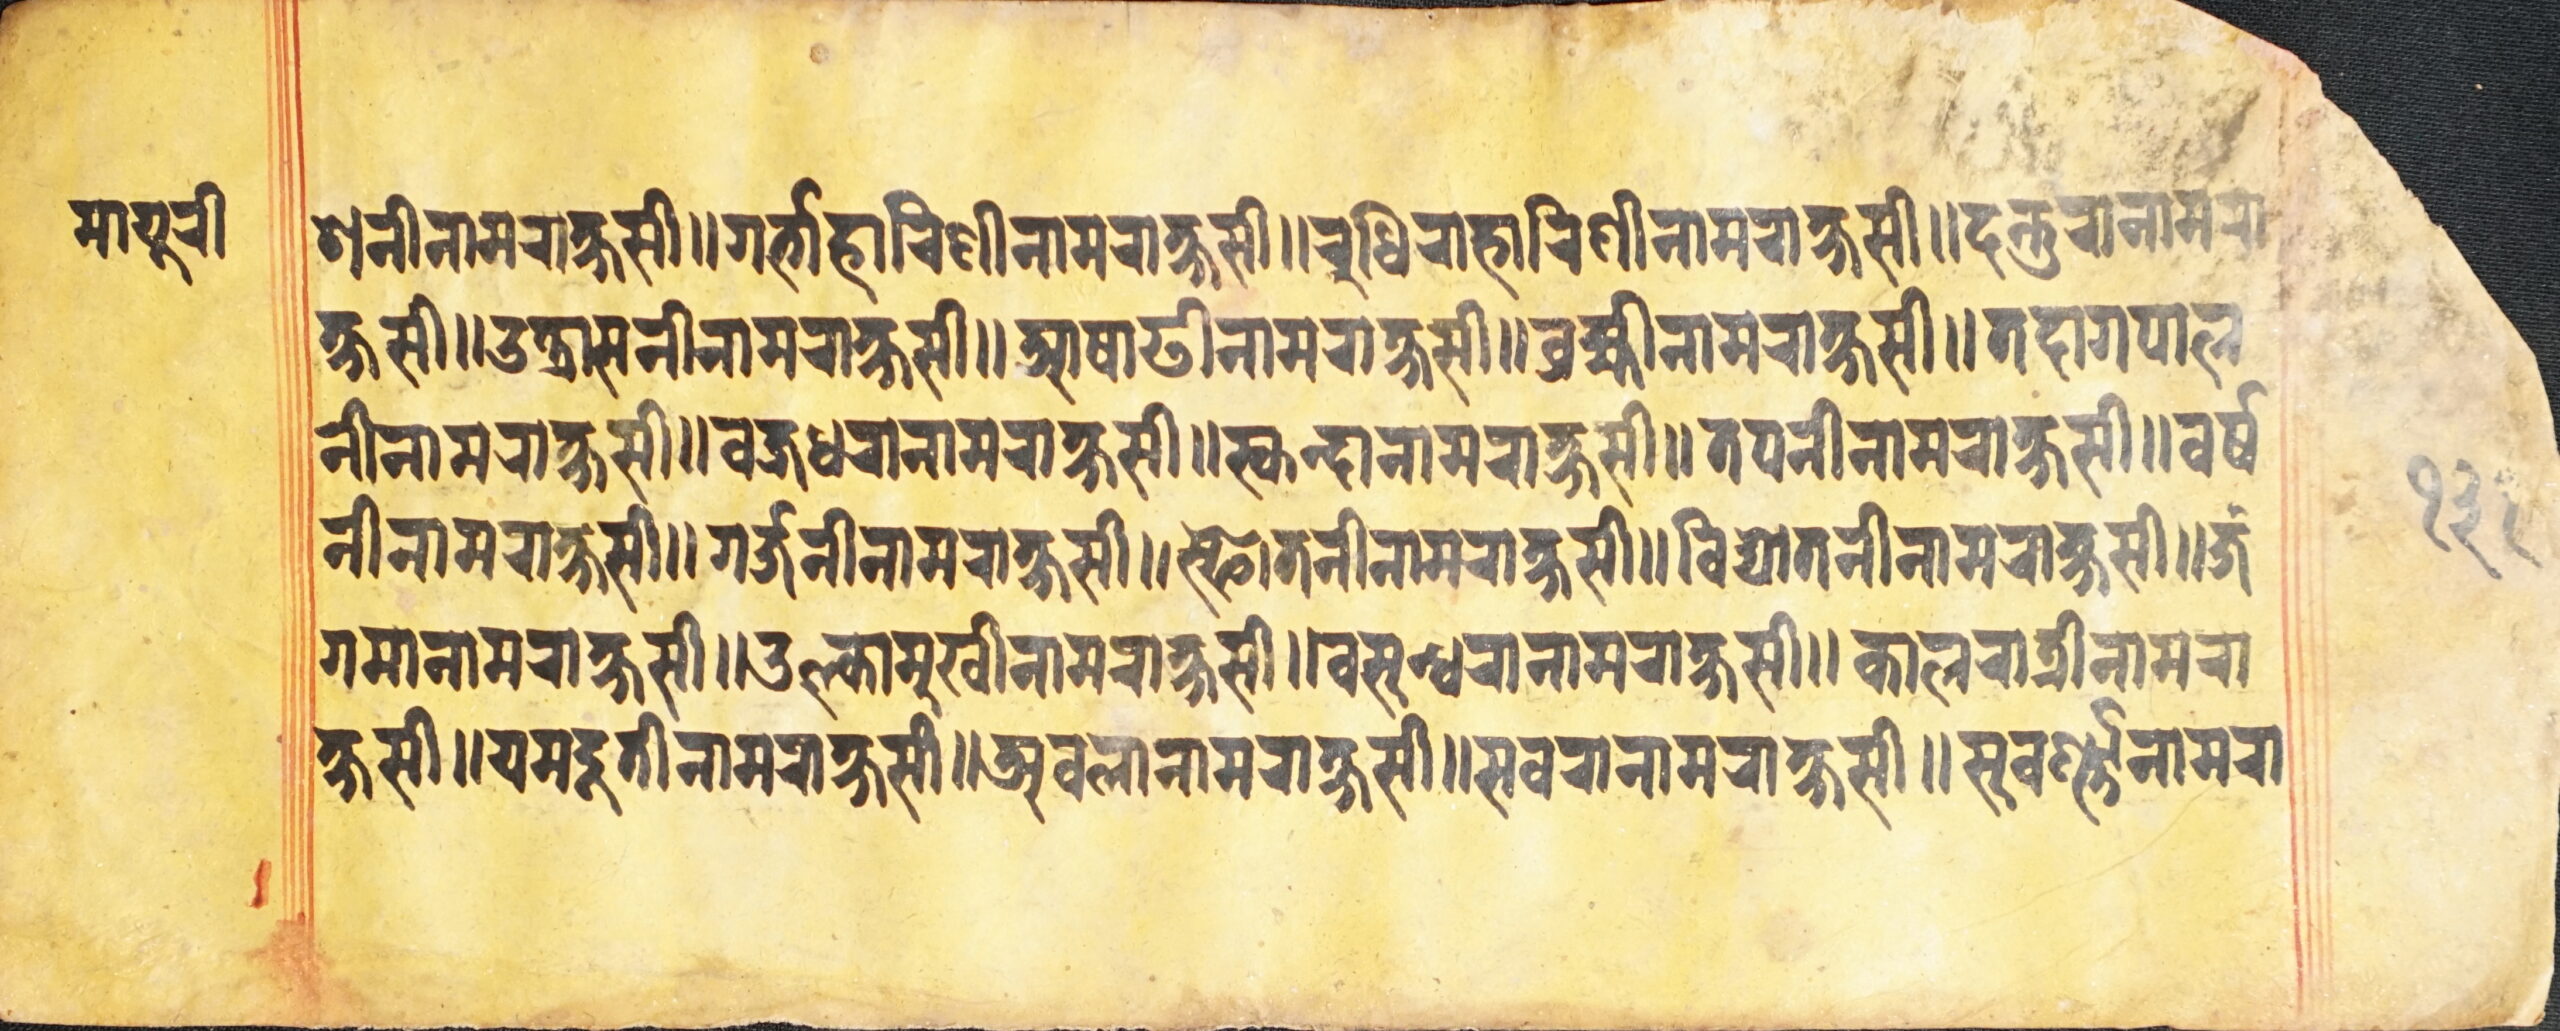 मायूरी
शनीनामराक्षसी॥गर्त्ताहारिणीनामराक्षसी॥रुधिराहारिणीनामराक्षसी॥दन्तुरानामरा
क्षसी॥उत्त्रासनीनामराक्षसी॥आषाढीनामराक्षसी॥व्रह्मीनामराक्षसी॥तदागपाल
नीनामराक्षसी॥वज्रधरानामराक्षसी॥स्कन्दानामराक्षसी॥तपनीनामराक्षसी॥वर्ष
नीनामराक्षसी॥गर्जनीनामराक्षसी॥स्फोतनीनामराक्षसी॥विद्योतनीनामराक्षसी॥जं
गमानामराक्षसी॥उल्कामुखीनामराक्षसी॥वसुन्धरानामराक्षसी॥कालरात्रीनामरा
क्षसी॥यमदूतीनामराक्षसी॥अवलानामराक्षसी॥सवरानामराक्षसी॥सुवर्ण्णानामरा